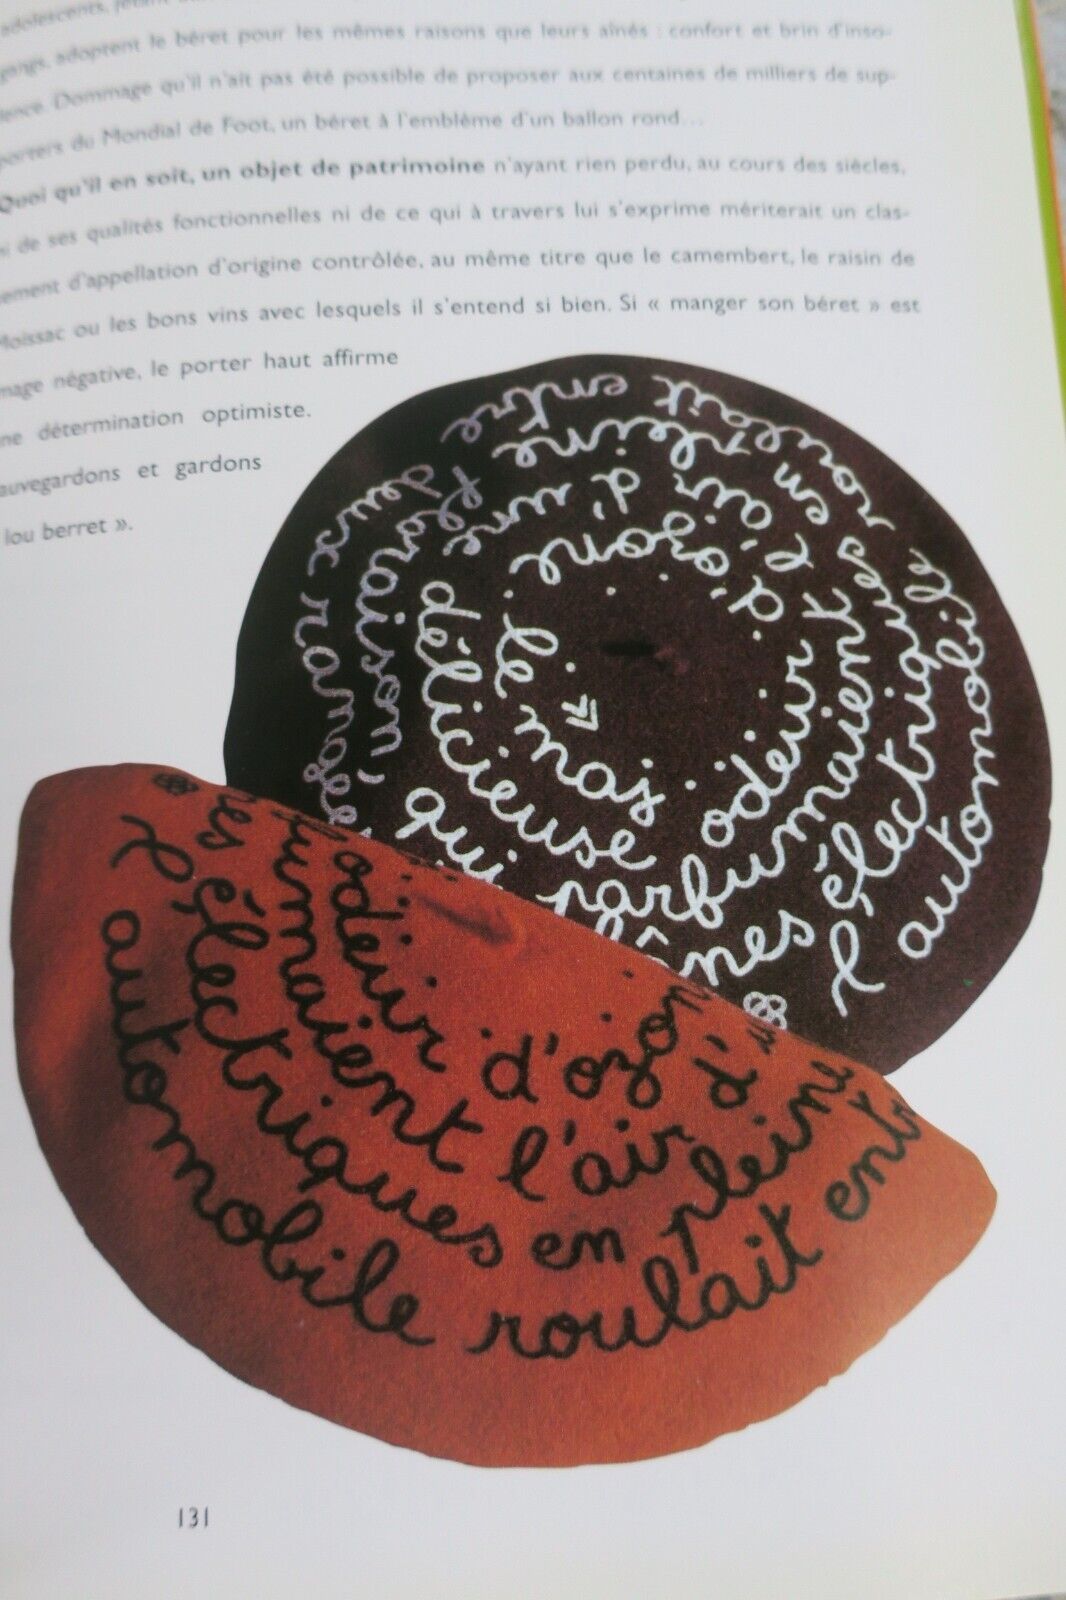 adolescents,
gangs, adoptent le béret pour les mêmes raisons que leurs aînés : confort et brin d'inso-
lence. Dommage qu'il n'ait pas été possible de proposer aux centaines de milliers de sup-
porters du Mondial de Foot, un béret à l'emblème d'un ballon rond...
Quoi qu'il en soit, un objet de patrimoine n'ayant rien perdu, au cours des siècles,
ni de ses qualités fonctionnelles ni de ce qui à travers lui s'exprime mériterait un clas-
sement d'appellation d'origine contrôlée, au même titre que le camembert, le raisin de
Moissac ou les bons vins avec lesquels il s'entend si bien. Si « manger son béret » est
mage négative, le porter haut affirme
ne détermination optimiste.
auvegardons et gardons
lou berret ».
l'automobile roulait entre deux rangées
nes électriques en pleine floraison,
qui parfumaient l'air d'une
délicieuse odeur d'ozone.
le maj
odeur d'ozon
umaient l'air d'u
es électriques en pleine
l'automobile roulait entr
131